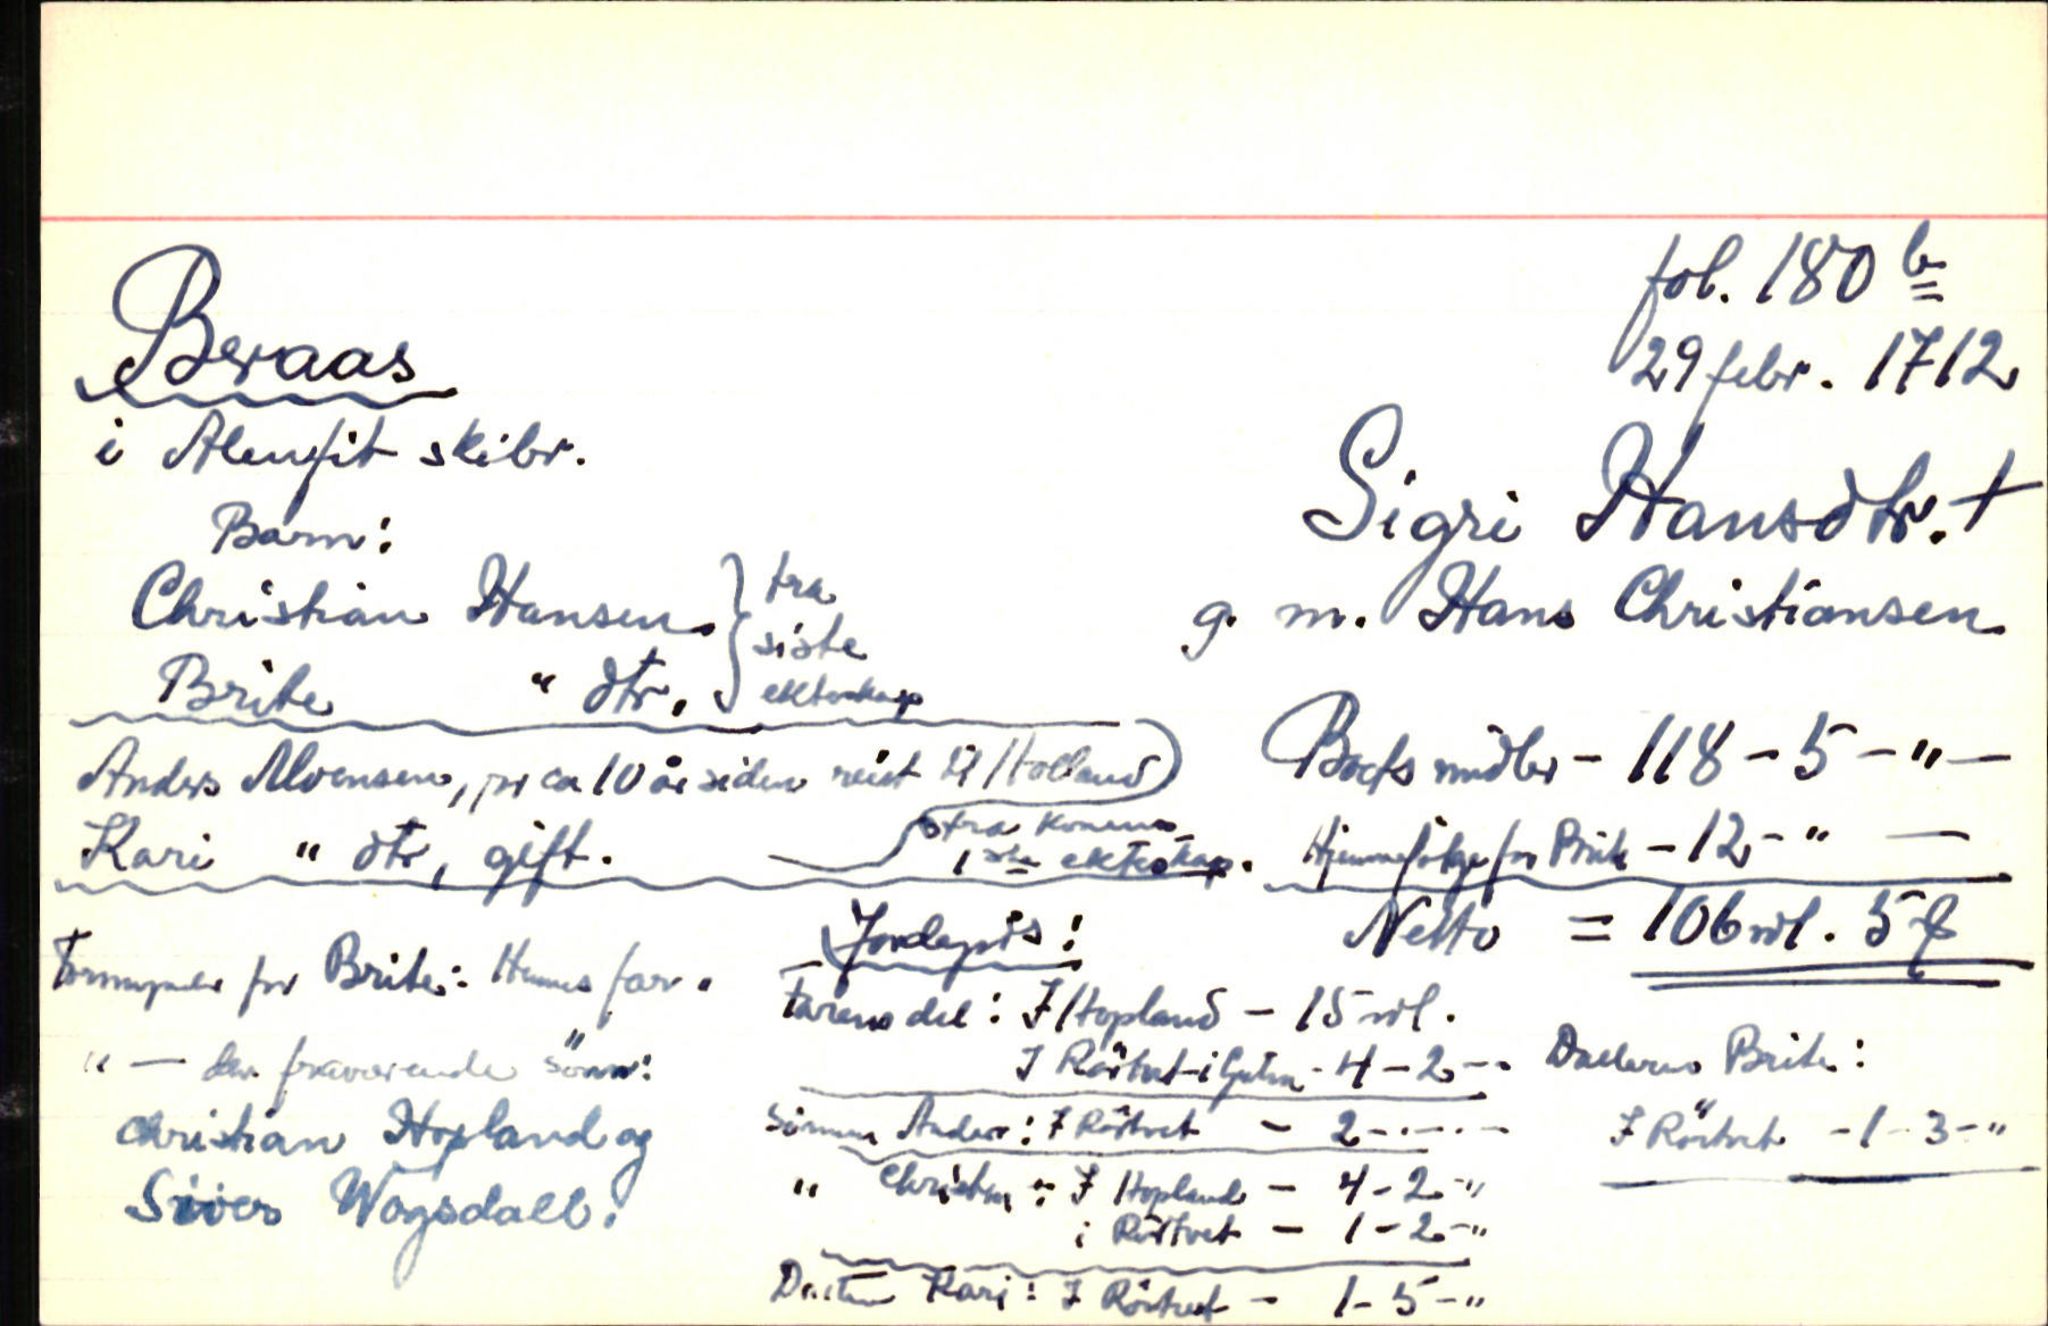 fol. 180 b
29 febr. 1712
Beraas
i Alenfit skibr.
Sigri Hansdtr. +
g. m. Hans Christiansen
Barn:
Christian Hansen
Brite " dtr.
fra
siste
ekteskap
Anders Monsen, for ca 10 år siden reist til Holland
Kari " dtr, gift.
fra konens
1ste ekteskap.
Boets midler - 118 - 5 - " -
Hjemmefølge for Brite - 12 - " -
Netto = 106 rdl. 5
Formynder for Brite: Hennes far.
" - den fraværende sönn:
Christian Hopland og
Siver Wogsdall.
Jordegods:
Farens del: I Hopland - 15 rdl.
I Rörtvet - 4 - 2 -
Sönnen Anders: I Rörtvet - 2 - . - . -
" Christian: I Hopland - 4 - 2 - "
i Rörtvet - 1 - 2 - "
Datteren Kari: I Rörtvet - 1 - 5 - "
Datteren Brite:
I Rörtvet - 1 - 3 - "